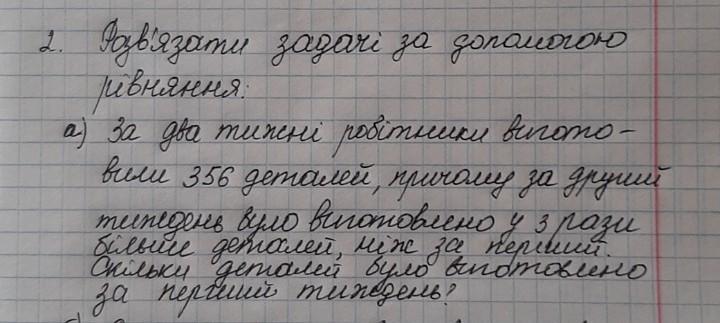 2. Розв'язати задачі за допомогою
рівняння:
а) За два тижні робітники вигото-
вили 356 деталей, причому за другий
тиждень було виготовлено у 3 рази
більше деталей, ніж за перший.
Скільки деталей було виготовлено
за перший тиждень?